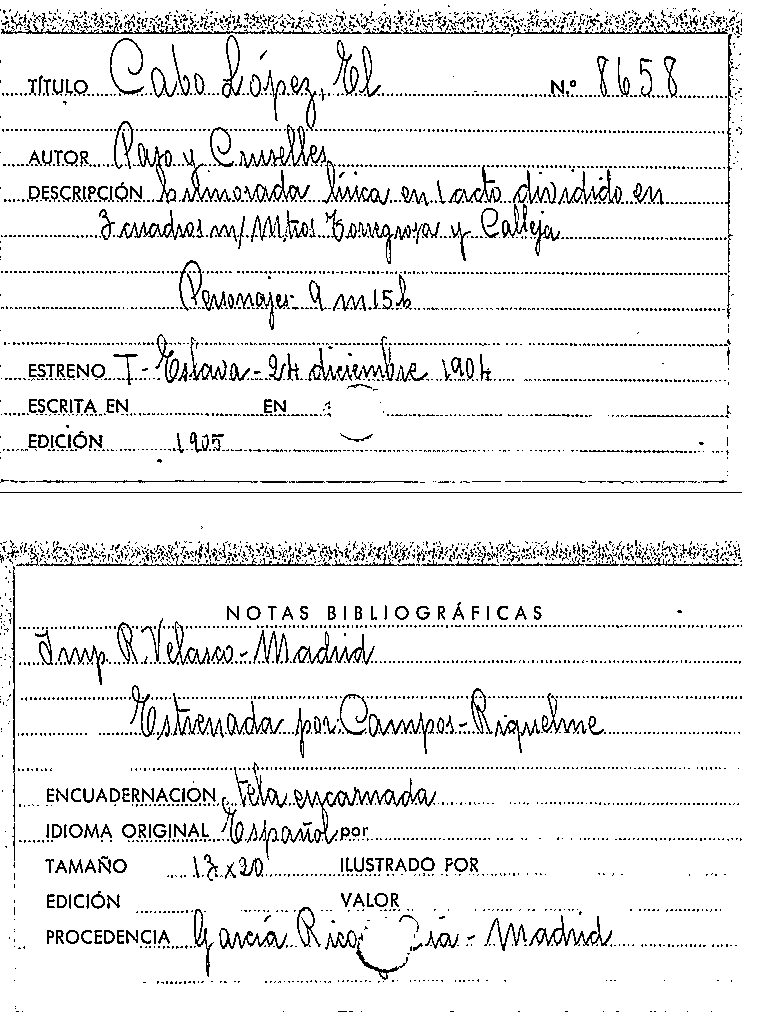 TÍTULO Cabo López, El N.º 8658
AUTOR Paso y Cruselles
DESCRIPCIÓN humorada lírica en 1 acto dividido en
3 cuadros m/ Mtros Torregrosa y Calleja
Personajes- 9 m 15 h
ESTRENO T- Eslava - 24 diciembre 1904
ESCRITA EN EN
EDICIÓN 1905
NOTAS BIBLIOGRÁFICAS
Imp. R. Velasco - Madrid
Estrenada por Campos - Riquelme
ENCUADERNACIÓN tela encarnada
IDIOMA ORIGINAL Español por
TAMAÑO 13 x 20 ILUSTRADO POR
EDICIÓN VALOR
PROCEDENCIA García Rico - Madrid